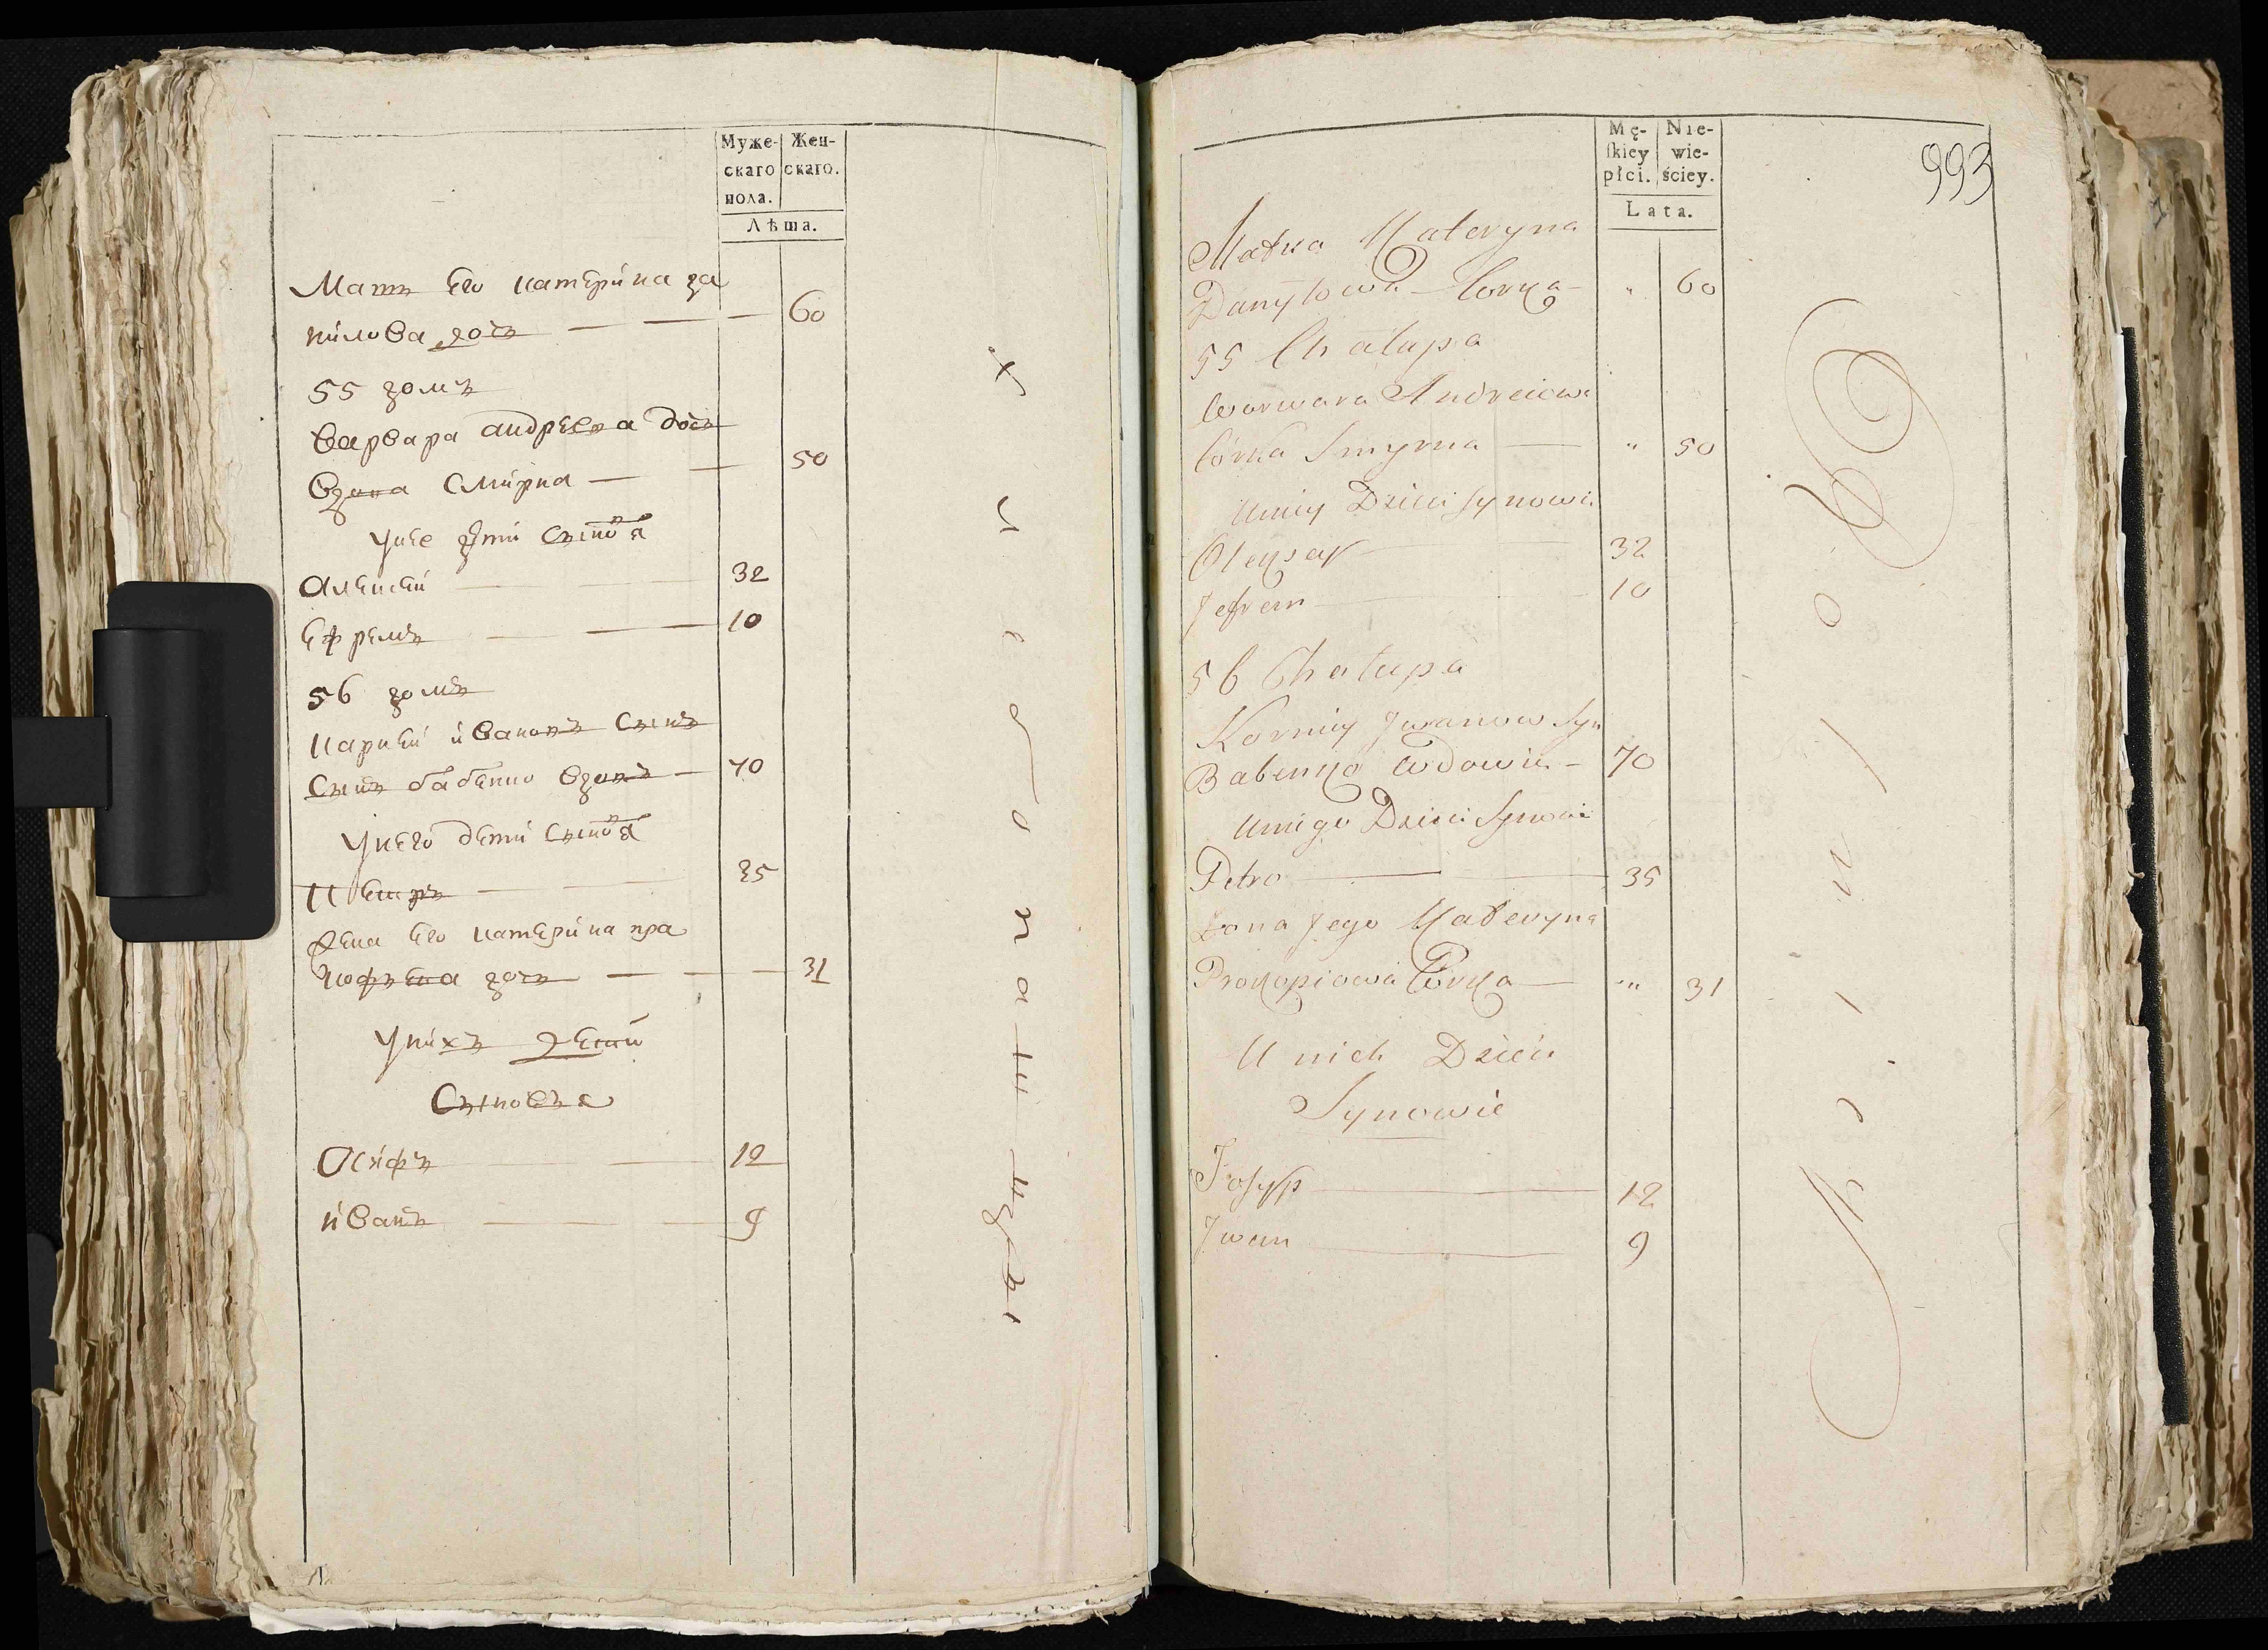 Муже-
скаго
пола.
Жен-
скаго.
Лѣта.
Мать его катерина да
нилова дочь 60
55 домъ
Варвара андрѣева дочь
вдова Смирна 50
унее дѣти сыновя
Алексей 32
Ефремъ 10
56 домъ
Карней ивановъ сынъ
Сынъ бабенко вдовъ 70
унего дети сыновя
Петръ 35
Жена его катерина про
кофъева дочь 31
унихъ дети
Сыновья
Осифъ 12
иванъ 9
Mę-
ſkiey
płci.
Nie-
wie-
ściey.
Lata.
993
Matka Kateryna
Danyłowa Corka " 60
55 Chałupa
Warwara Andreiowa
Córka Smyrna " 50
Uniey Dzieci Synowie
Olexey 32
Jefrem 10
56 Chałupa
Korniy Jwanow Syn
Babenko Wdowiec 70
Uniego Dzieci Synowie
Petro 35
Żona Jego Kateryna
Prokopiowa Córka " 31
U nich Dzieci
Synowie
Josyp 12
Jwan 9